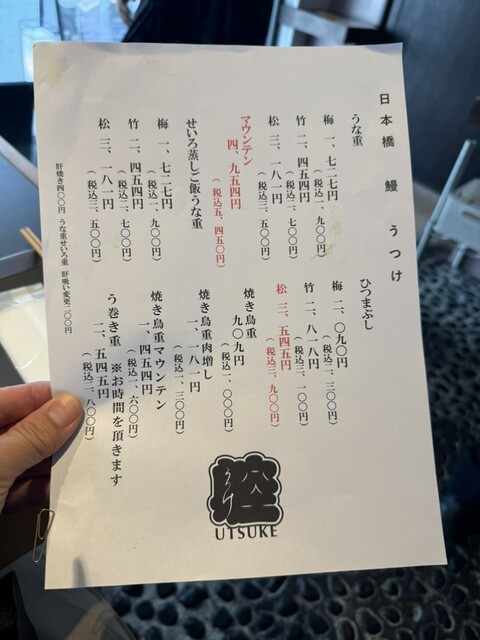 日本橋 鰻 うつけ
うな重
梅 一、七二七円
（税込一、九〇〇円）
竹 二、四五四円
（税込二、七〇〇円）
松 三、一八一円
（税込三、五〇〇円）
マウンテン
四、九五四円
（税込五、四五〇円）
せいろ蒸しご飯うな重
梅 一、七二七円
（税込一、九〇〇円）
竹 二、四五四円
（税込二、七〇〇円）
松 三、一八一円
（税込三、五〇〇円）
肝焼き四〇〇円 うな重せいろ重 肝吸い変更二〇〇円
ひつまぶし
梅 二、〇九〇円
（税込二、三〇〇円）
竹 二、八一八円
（税込三、一〇〇円）
松 三、五四五円
（税込三、九〇〇円）
焼き鳥重
九〇九円
（税込一、〇〇〇円）
焼き鳥重肉増し
一、一八一円
（税込一、三〇〇円）
焼き鳥重マウンテン
一、四五四円
（税込一、六〇〇円）
う巻き重 ※お時間を頂きます
二、五四五円
（税込二、八〇〇円）
UTSUKE